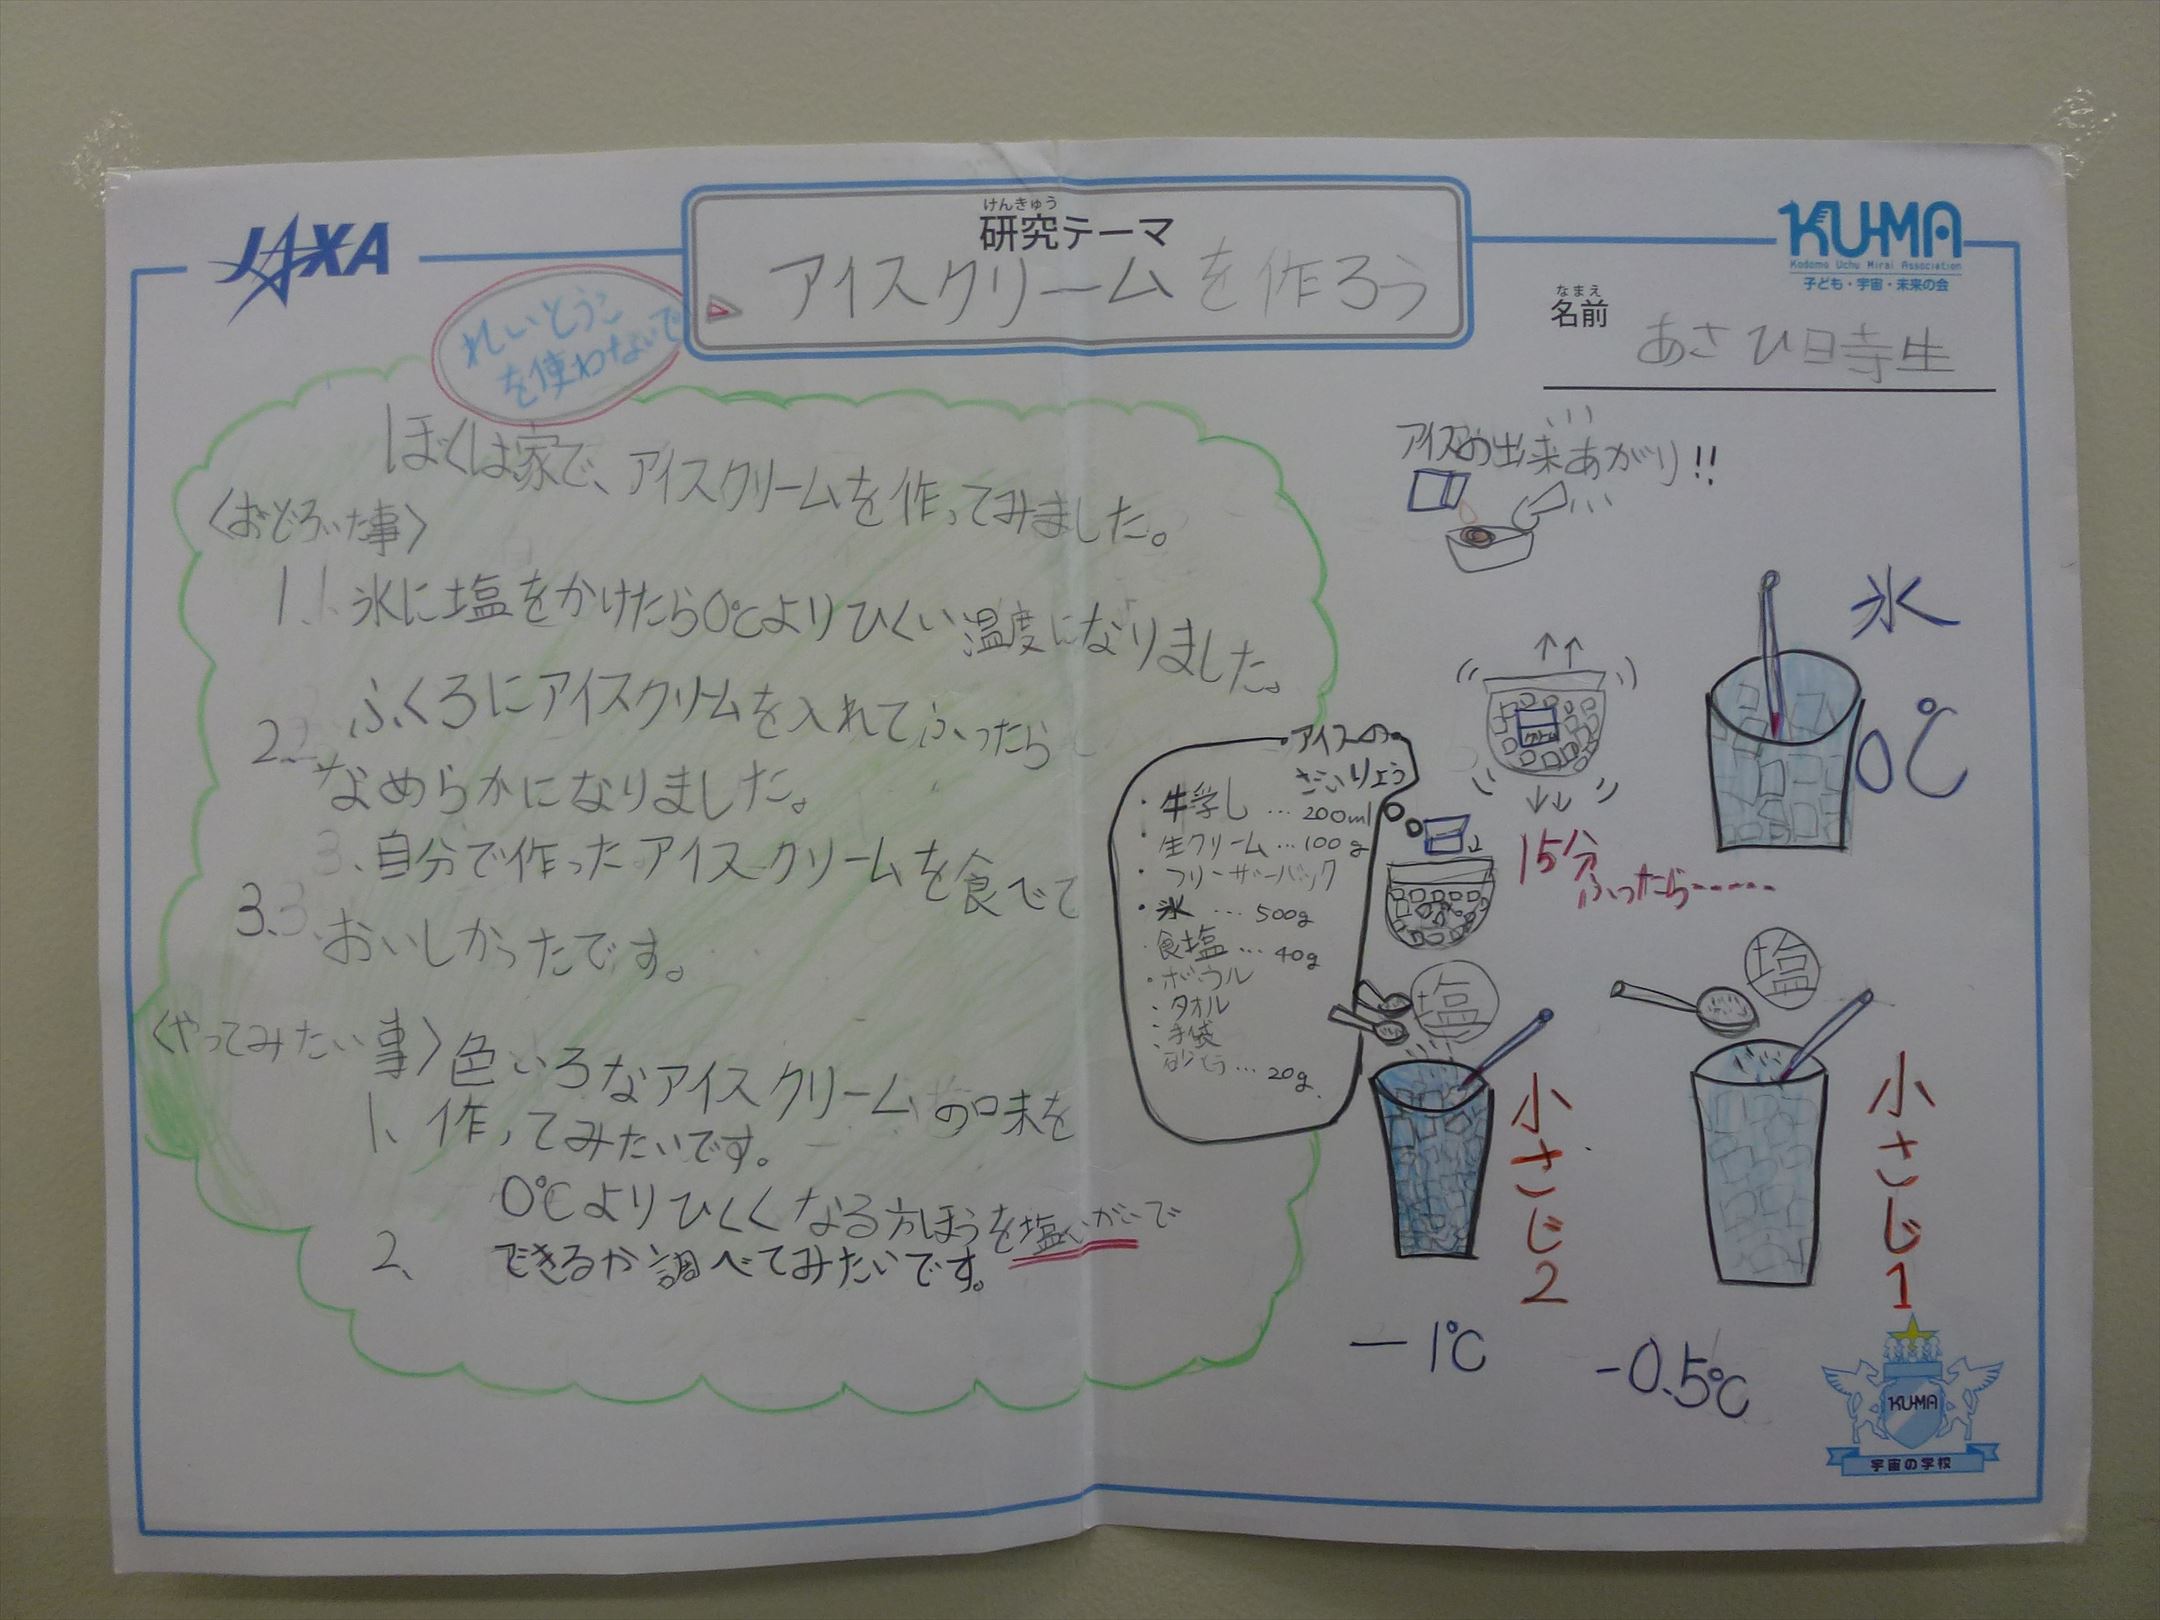 JAXA
けんきゅう
研究テーマ
アイスクリームを作ろう
れいとうこ
を使わないで
KU-MA
Kodomo Uchu Mirai Association
子ども・宇宙・未来の会
なまえ
名前
あさひ日寺生
ぼくは家で、アイスクリームを作ってみました。
〈おどろいた事〉
1. 氷に塩をかけたら0℃よりひくい温度になりました。
2. ふくろにアイスクリームを入れてふったら
なめらかになりました。
3. 自分で作ったアイスクリームを食べて
おいしかったです。
〈やってみたい事〉
1、色いろなアイスクリームの味を
作ってみたいです。
2、0℃よりひくくなる方ほうを塩いがいで
できるか調べてみたいです。
アイスの
ざいりょう
・牛学し…200ml
・生クリーム…100g
・フリーザーバック
・氷…500g
・食塩…40g
・ボウル
・タオル
・手袋
砂とう…20g
アイスの出来あがり!!
クリーム
15分
ふったら------
氷
0℃
塩
小さじ2
-1℃
塩
小さじ1
-0.5℃
KU-MA
宇宙の学校